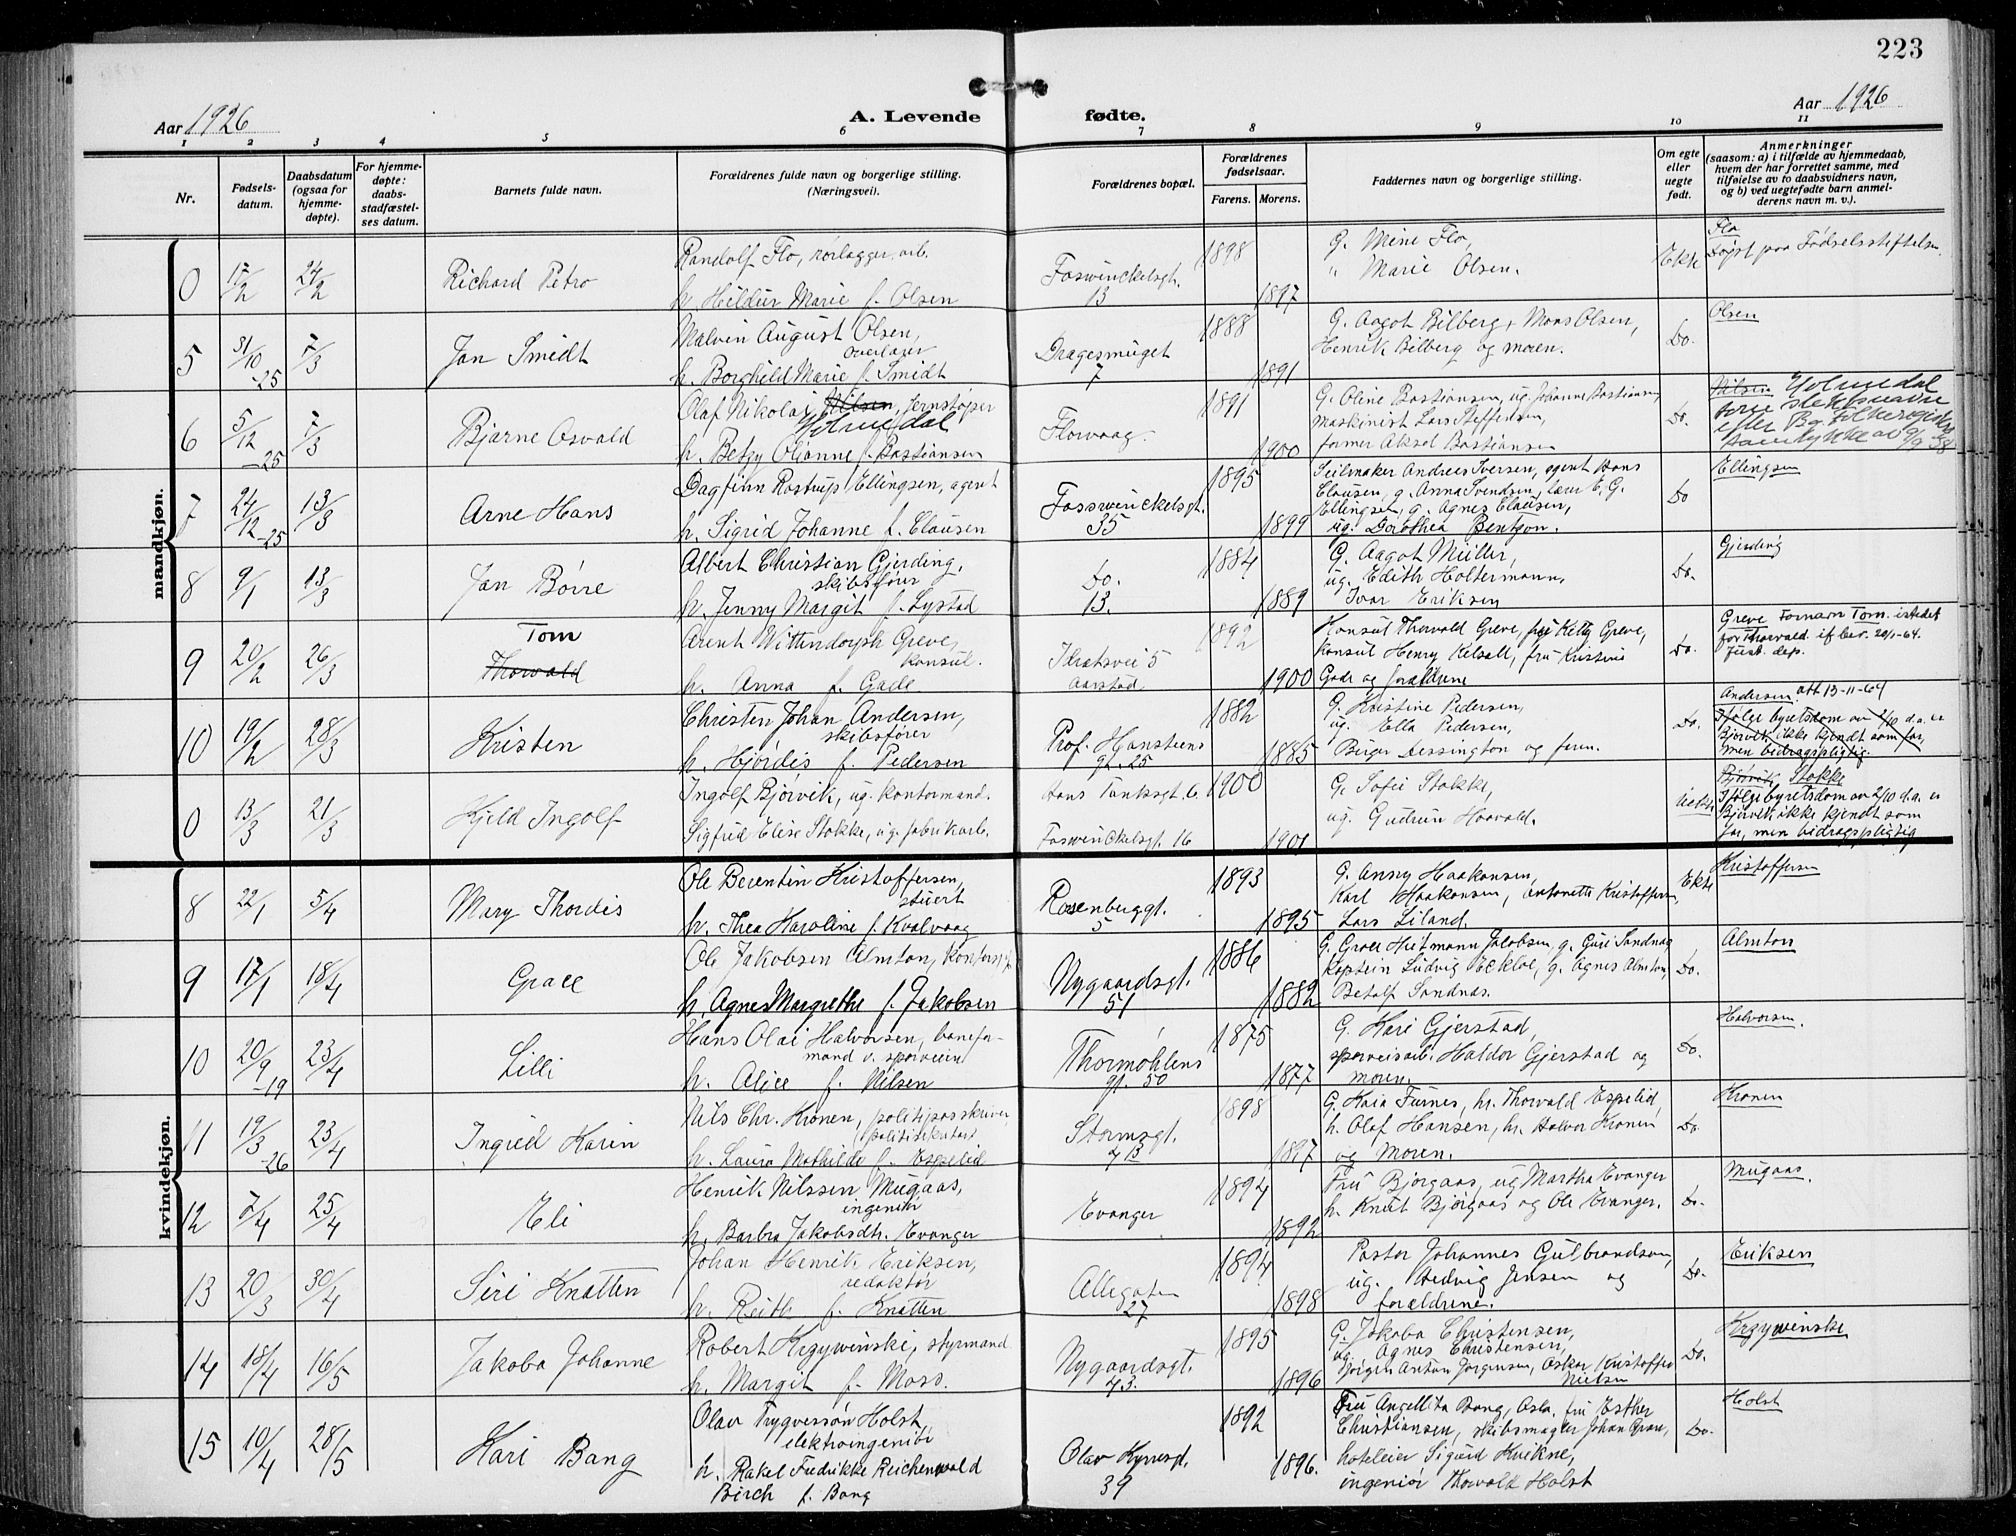 223
Aar 1926 A. Levende fødte. Aar 1926
1 2 3 4 5 6 7 8 9 10 11
Nr.
Fødsels-
datum.
Daabsdatum
(ogsaa for
hjemme-
døpte).
For hjemme-
døpte:
daabs-
stadfæstel-
ses datum.
Barnets fulde navn.
Forældrenes fulde navn og borgerlige stilling.
(Næringsvei).
Forældrenes bopæl.
Forældrenes
fødselsaar.
Farens. Morens.
Faddernes navn og borgerlige stilling.
Om egte
eller
uegte
født.
Anmerkninger
(saasom: a) i tilfælde av hjemmedaab,
hvem der har forrettet samme, med
tilføielse av to daabsvidners navn,
og b) ved uegtefødte barn anmel-
derens navn m. v.).
mandkjøn.
0 17/2 24/2 Richard Petro
Randolf Flo, rørlægger arb.
h. Hildur Marie f. Olsen
Foswinckelsgt.
13
1898 1897
G. Mine Flo,
" Marie Olsen.
Ekte
Flo
Døpt paa Fødselsstiftelsen.
5 31/10-25 5/3 Jan Smidt
Malvin August Olsen,
overlærer
h. Borghild Marie f. Smidt
Dragesmuget
7
1888 1891
G. Aagot Bilberg, Mons Olsen,
Henrik Bilberg og moren.
Do.
Olsen
6 5/12-25 5/3 Bjarne Osvald
Olaf Nikolai Nilsen, Jernstøper
Holmedal
h. Betzy Olianne f. Bastiansen
Florvaag
1891 1900
G. Oline Bastiansen, ug. Johanne Bastiansen
maskinist Lars Steffensen,
former Aksel Bastiansen
Do.
Nilsen Holmedal
7 24/12-25 13/3 Arne Hans
Dagfinn Rostrup Ellingsen, agent
h. Sigrid Johanne f. Clausen
Fosswinckelsgt.
35
1895 1899
Seilmaker Andreas Iversen, agent Hans
Clausen, g. Anna Svendsen, lærer E. G.
Ellingsen, g. Agnes Clausen,
ug. Dorothea Bentzon.
Do
Ellingsen
8 9/1 13/3 Jan Børre
Albert Christian Gjerding,
skibsfører
h. Jenny Margit f. Lystad
Do.
13.
1884 1889
G. Aagot Müller,
ug. Edith Holtermann,
Ivar Eriksen
Do.
Gjerding
9 20/2 26/3 Tom
Thorvald
Arent Wittendorph Greve,
konsul.
h. Anna f. Gade
Idratsvei 5
Aarstad.
1892 1900
Konsul Thorvald Greve, fru Kitty Greve,
konsul Henry Kelsall, fru Kristine
Gade og forældrene
Do.
Greve Fornavn Tom. istedet
for Thorvald if. bev. 20/1-64.
Just. dep.
10 19/2 28/3 Kristen
Christen Johan Andersen,
skibsfører
h. Hjørdis f. Pedersen
Prof. Hansteens
gt. 25
1882 1885
G. Kristine Pedersen,
ug. Ella Pedersen,
Birger Lessington og faren.
Do.
Andersen att 13-11-64
Ifølge byretsdom av 2/10 d.a. er
Bjørvik ikke kjendt som far,
men bidragspligtig
0 13/3 21/3 Kjeld Ingolf
Ingolf Bjørvik, ug. kontormand.
Sigfrid Elise Stokke, ug. fabrikarb.
Hans Tanksgt. 6.
Foswinckelsgt. 16
1900 1901
G. Sofie Stokke,
ug. Gudrun Haavald.
Uekte
Bjørvik Stokke
Ifølge byretsdom av 2/10 d.a. er
Bjørvik ikke kjendt som
far, men bidragspligtig
kvindekjøn.
8 22/1 5/4 Mary Thordis
Ole Berentin Kristoffersen,
stuert
h. Thea Karoline f. Kvalvaag
Rosenberggt.
5
1893 1895
G. Anny Haakonsen,
Karl Haakonsen, Antonette Kristoffersen,
Lars Liland.
Ekte
Kristoffersen
9 17/1 18/4 Grace
Ole Jakobsen Almton,
h. Agnes Margrethe f. Jakobsen
Nygaardsgt.
51
1886 1882
G. Grace Heitmann Jacobsen, g. Guri Sandnas
Kaptein Ludvig Eckloe, g. Agnes Almton,
Betolf Sandnas.
Do.
Almton
10 20/9-19 23/4 Lilli
Hans Olai Halvorsen, banefor-
mand v. sporveien
h. Alice f. Nilsen
Thormøhlens
gt. 50
1875 1877
G. Kari Gjerstad,
sporveisarb. Haldor Gjerstad og
moren.
Do.
Halvorsen.
11 19/3-26 23/4 Ingrid Karin
Nils Chr. Kronen, politipasskriver
h. Laura Mathilde f. Espelid
Stormsgt.
13
1898 1897
G. Kaia Furnes, hr. Thorvald Espelid,
h. Olaf Hansen, hr. Halvor Kronen
og moren.
Do.
Kronen
12 7/4 25/4 Eli
Henrik Nilssen Mugaas,
ingeniør
h. Barbra Jakobsdtr. Evanger
Evanger
1894 1892
Fru Bjørgaas, ug Martha Evanger
h. Knut Bjørgaas og Ole Evanger.
Do.
Mugaas.
13 20/3 30/4 Siri Knatten
Johan Henrik Eriksen,
redaktør
h. Reith f. Knatten
Allegaten
27
1894 1898
Pastor Johannes Gulbrandsen,
ug. Hedvig Jensen og
forældrene.
Do.
Eriksen
14 18/4 16/5 Jakoba Johanne
Robert Krzywinski, styrmand
h. Margit f. Moss.
Nygaardsgt.
43.
1895 1896
G. Jakoba Christensen,
ug. Agnes Christensen,
Jørgen Anton Jørgensen, Oskar Kristoffer
Nielsen
Do.
Krzywinske
15 10/4 28/5 Kari Bang
Olav Trygvessøn Holst,
elektroingeniør
h. Rakel Fredrikke Reichenwald
Birch f. Bang
Olav Kyrresgt.
39
1892 1896.
Fru Angellita Bang, Oslo. fru Esther
Christiansen, skibsmægler Johan Gran,
hoteleier Sigurd Kvikne,
ingeniør Thorvald Holst
Do.
Holst